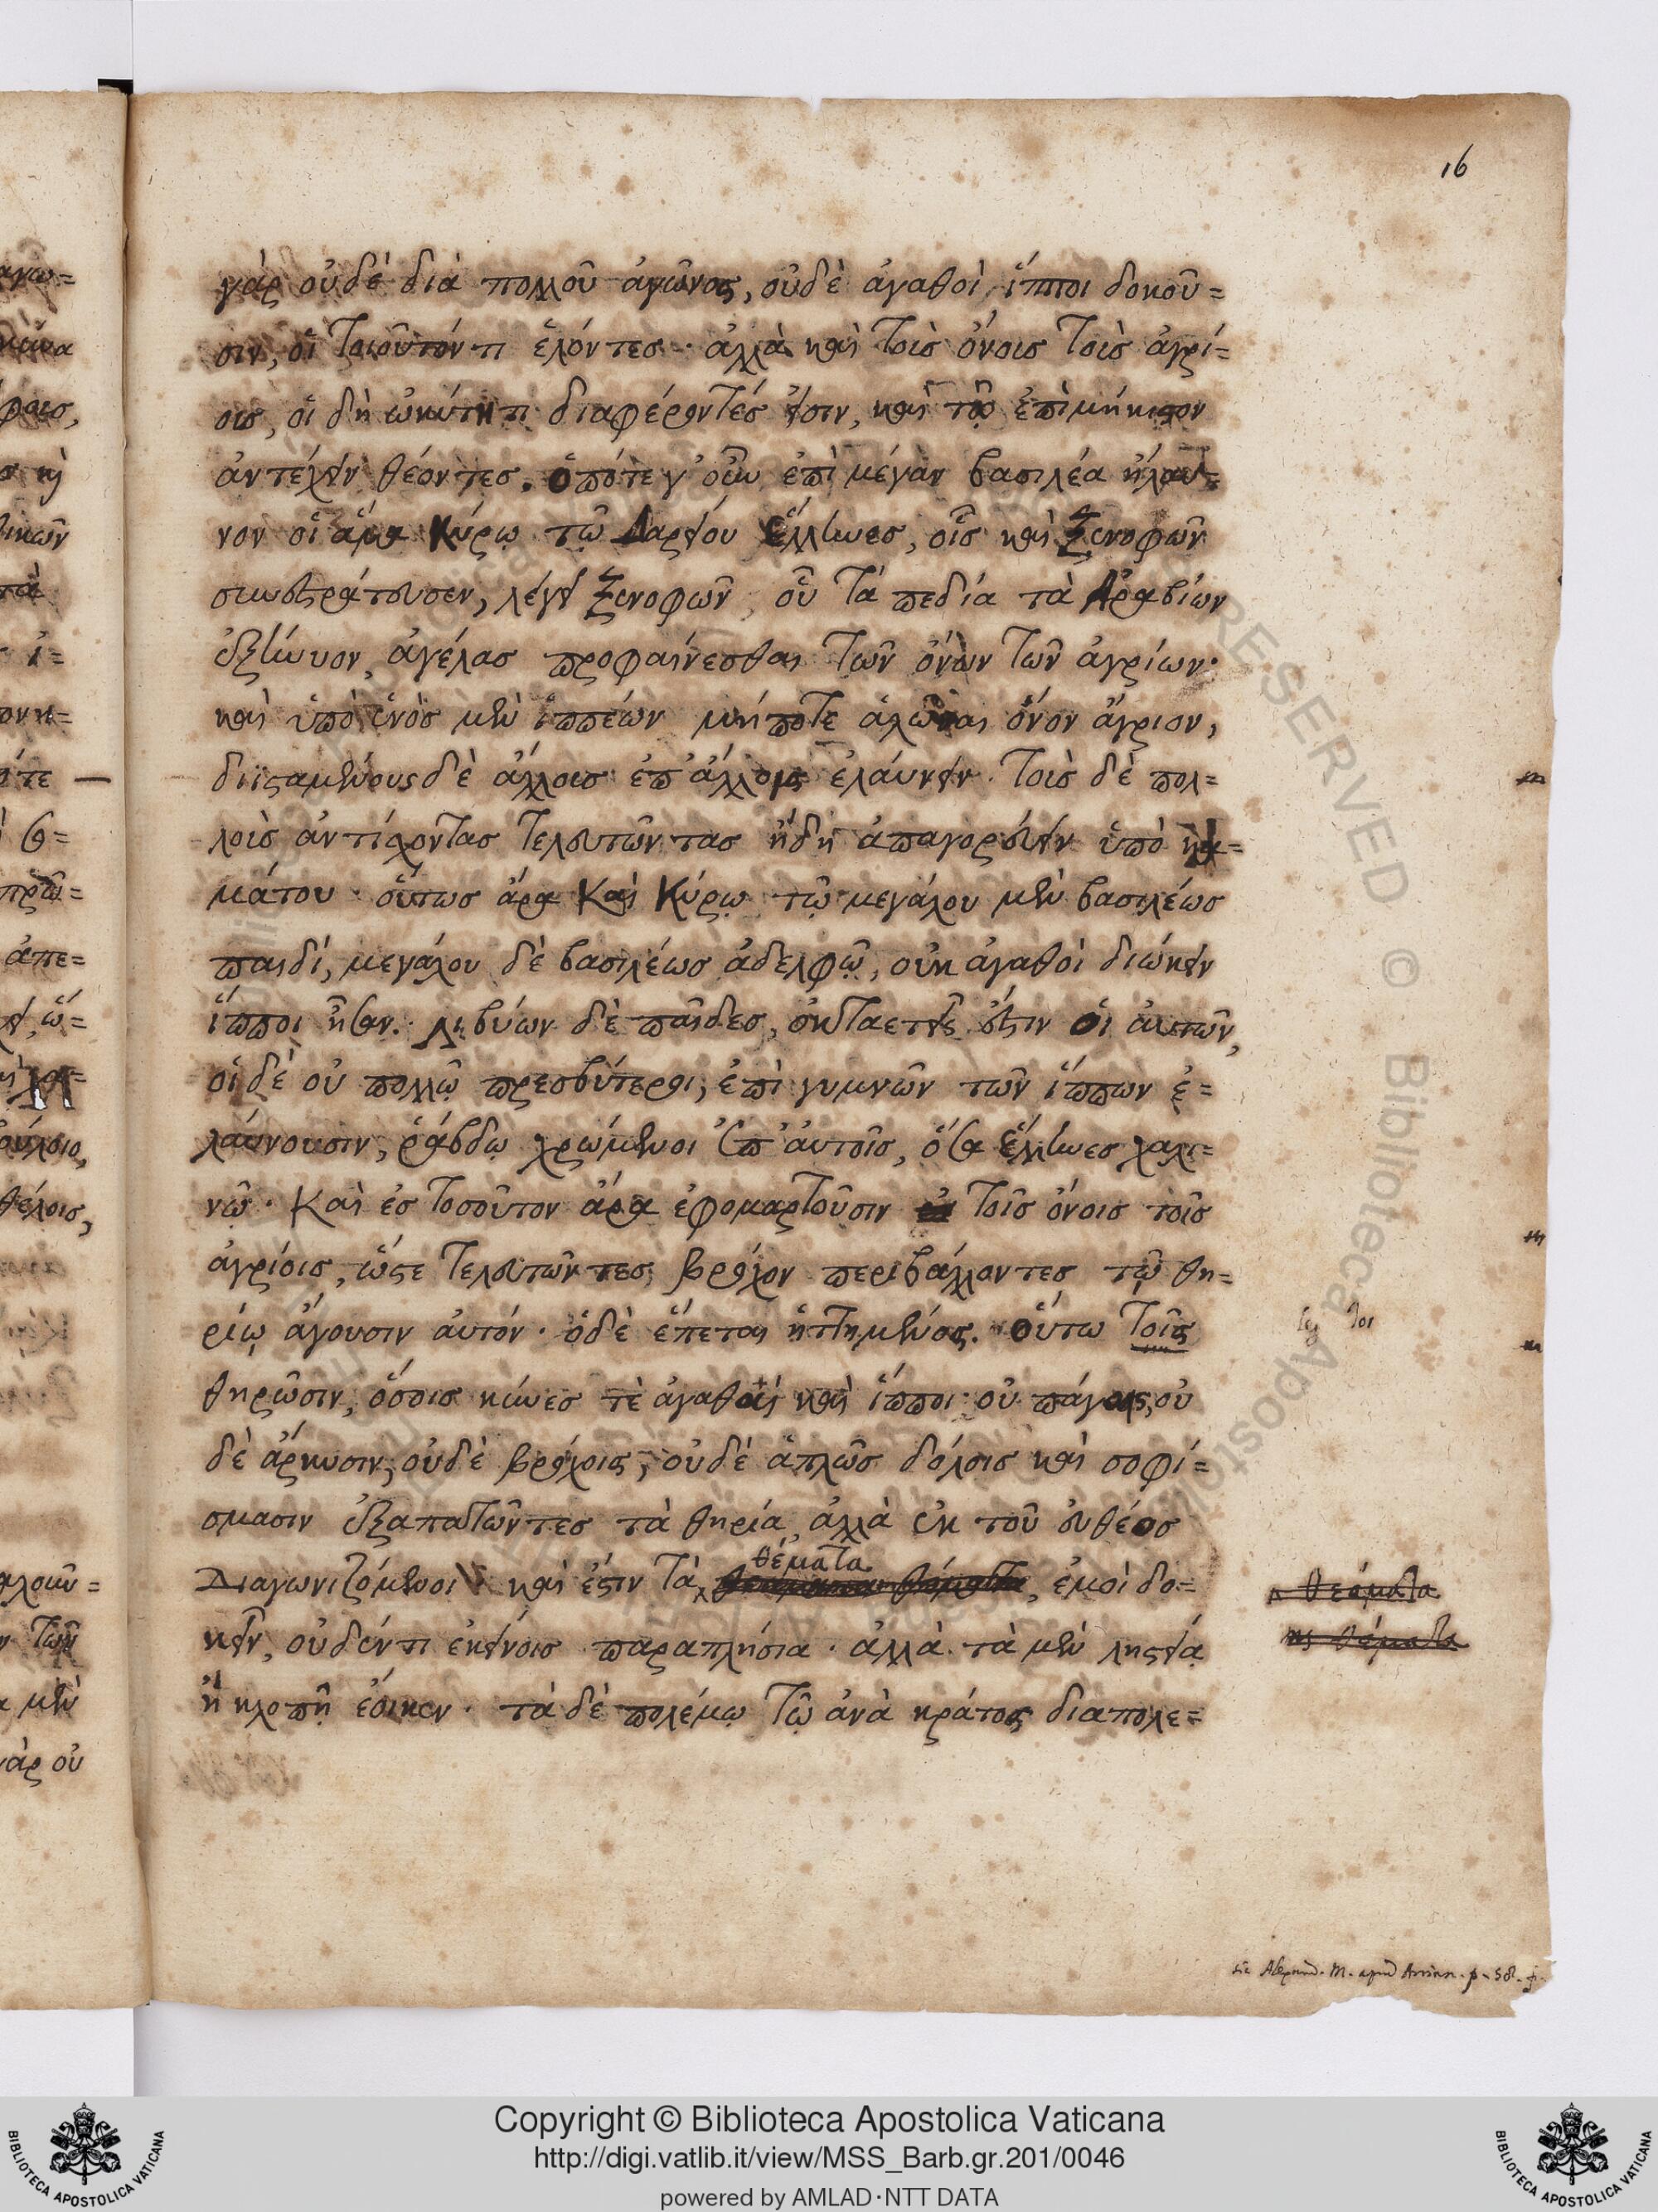 16
γὰρ οὐδὲ διὰ πολλοῦ ἀγῶνος, οὐδὲ ἀγαθοὶ ἵπποι δοκοῦ=
σιν, οἱ τοιοῦτόν τι ἑλόντες· ἀλλὰ καὶ τοῖς ὄνοις τοῖς ἀγρί=
οις, οἱ δὴ ὠκύτητι διαφέροντές εἰσιν, καὶ τῷ ἐπιμήκιστον
ἀντέχειν θέοντες. ὁπότε γ' οὖν ἐπὶ μέγαν βασιλέα ἤλαυ=
νον οἱ ἅμα Κύρῳ τῷ Δαρείου Ἕλληνες, οἷς καὶ Ξενοφῶν
συνεστράτευσεν, λέγει Ξενοφῶν, οὗ τὰ πεδία τὰ Ἀραβίων
ἐξήνυον, ἀγέλας προφαίνεσθαι τῶν ὄνων τῶν ἀγρίων·
καὶ ὑπὸ ἑνὸς μὲν ἱππέων μήποτε ἁλῶναι ὄνον ἄγριον,
διϊσταμένους δὲ ἄλλοις ἐπ' ἄλλοις ἐλαύνειν. τοῖς δὲ πολ=
λοῖς ἀντίχοντας τελευτῶντας ἤδη ἀπαγορεύειν ὑπὸ κα=
μάτου· οὕτως ἄρα Καὶ Κύρῳ τῷ μεγάλου μὲν βασιλέως
παιδί, μεγάλου δὲ βασιλέως ἀδελφῷ, οὐκ ἀγαθοὶ διώκειν
ἵπποι ἦσαν. Λιβύων δὲ παῖδες, ὀκταετεῖς ἔστιν οἱ αὐτῶν,
οἱ δὲ οὐ πολλῷ πρεσβύτεροι, ἐπὶ γυμνῶν τῶν ἵππων ἐ=
λαύνουσιν, ῥάβδῳ χρώμενοι ἐπ' αὐτοῖς, ὅσα Ἕλληνες χαλι=
νῷ. Καὶ ἐς τοσοῦτον ἄρα ἐφομαρτοῦσιν τοῖς ὄνοις τοῖς
ἀγρίοις, ὥστε τελευτῶντες, βρόχον περιβάλλοντες τῷ θη=
ρίῳ ἄγουσιν αὐτόν· ὁ δὲ ἕπεται ἡττημένος. Οὕτω τοῖς
θηρῶσιν, ὅσοις κύνες τὲ ἀγαθαὶ καὶ ἵπποι· οὐ πάγαις, οὐ
δὲ ἄρκυσιν, οὐδὲ βρόχοις, οὐδὲ ἁπλῶς δόλοις καὶ σοφί=
σμασιν ἐξαπατῶντες τὰ θηρία, ἀλλὰ ἐκ τοῦ εὐθέος
Διαγωνιζόμενοι· καὶ ἔστιν τὰ θέματα, ἐμοὶ δο=
κεῖν, οὐδέν τι ἐκείνοις παραπλήσια· ἀλλὰ τὰ μὲν ληστείᾳ
ἢ κλοπῇ ἔοικεν· τὰ δὲ πολέμῳ τῷ ἀνὰ κράτος διαπολε=
θεάματα
καὶ θέματα
Copyright © Biblioteca Apostolica Vaticana
http://digi.vatlib.it/view/MSS_Barb.gr.201/0046
powered by AMLAD·NTT DATA
BIBLIOTECA APOSTOLICA VATICANA
BIBLIOTECA APOSTOLICA VATICANA